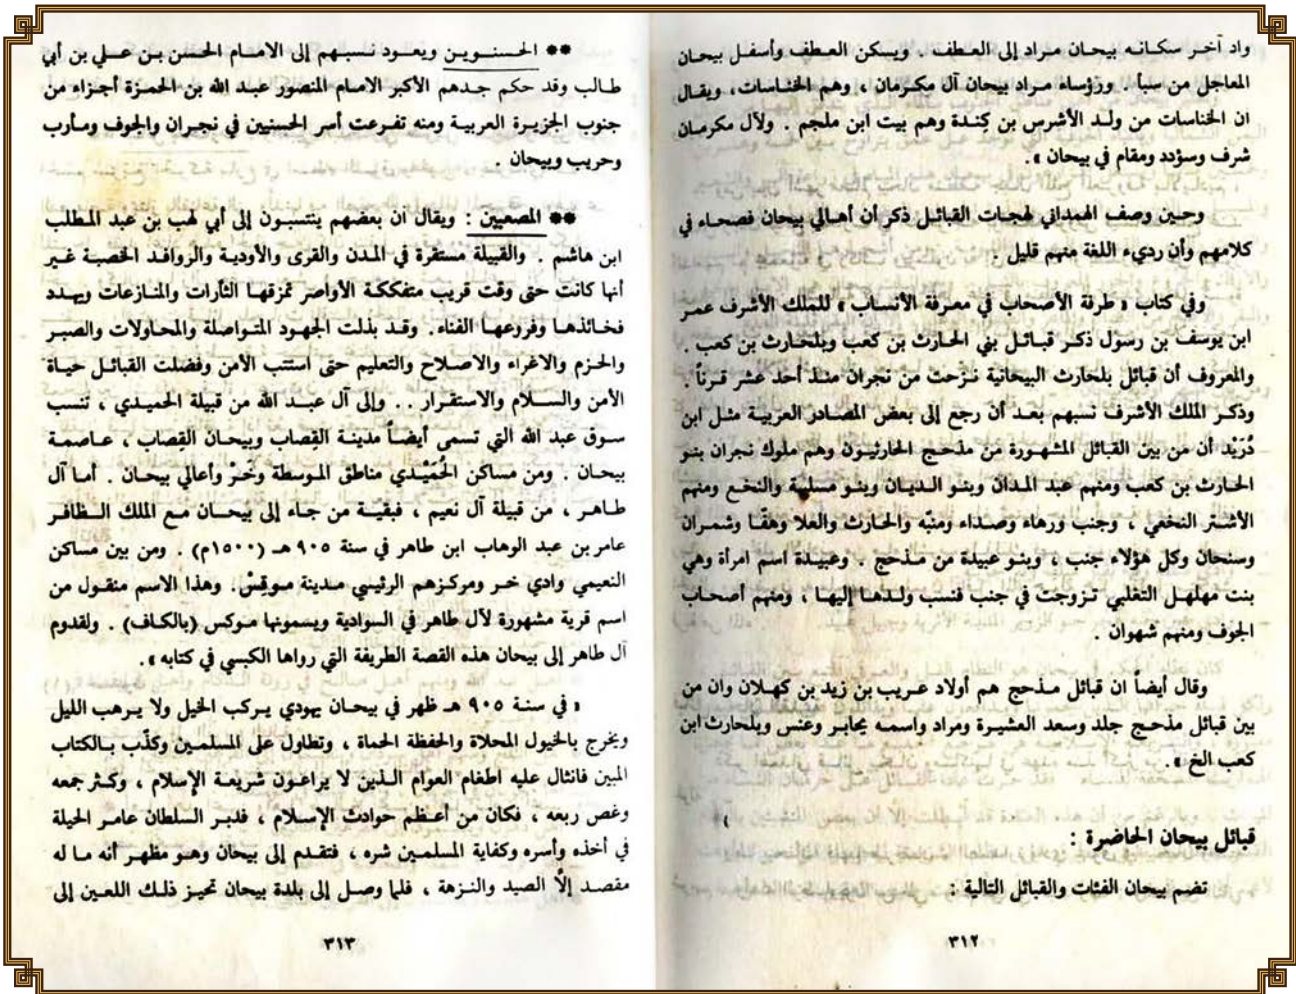 واد آخر سكانه بيحان مراد إلى العطف . ويسكن العطف وأسفل بيحان
المعاجل من سبأ . ورؤساء مراد بيحان آل مكرمان ، وهم الخناسات، ويقال
ان الخناسات من ولد الأشرس بن كِندة وهم بيت ابن ملجم . ولآل مكرمان
شرف وسؤدد ومقام في بيحان ».
وحين وصف الهمداني لهجات القبائل ذكر أن أهالي بيحان فصحاء في
كلامهم وأن رديء اللغة منهم قليل .
وفي كتاب « طرفة الأصحاب في معرفة الأنساب » للملك الأشرف عمر
ابن يوسف بن رسول ذكر قبائل بني الحارث بن كعب وبلحارث بن كعب .
والمعروف أن قبائل بلحارث البيحانية نزحت من نجران منذ أحد عشر قرناً .
وذكر الملك الأشرف نسبهم بعد أن رجع إلى بعض المصادر العربية مثل ابن
دُرَيْد أن من بين القبائل المشهورة من مذحج الحارثيون وهم ملوك نجران بنو
الحارث بن كعب ومنهم عبد المدان وبنو الديان وبنو مسلية والنخع ومنهم
الأشتر النخعي ، وجنب ورهاء وصداء ومنبّه والحارث والعلا وهفّا وشمران
وسنحان وكل هؤلاء جنب ، وبنو عبيدة من مذحج . وعبيدة اسم امرأة وهي
بنت مهلهل التغلبي تزوجت في جنب فنسب ولدها إليها ، ومنهم أصحاب
الجوف ومنهم شهوان .
وقال أيضاً ان قبائل مذحج هم أولاد عريب بن زيد بن كهلان وان من
بين قبائل مذحج جلد وسعد العشيرة ومراد واسمه يحابر وعنس وبلحارث ابن
كعب الخ ».
قبائل بيحان الحاضرة :
تضم بيحان الفئات والقبائل التالية :
٣١٢
** الحسنوين ويعود نسبهم إلى الامام الحسن بن علي بن أبي
طالب وقد حكم جدهم الأكبر الامام المنصور عبد الله بن الحمزة أجزاء من
جنوب الجزيرة العربية ومنه تفرعت أسر الحسنيين في نجران والجوف ومأرب
وحريب وبيحان .
** المصعبين : ويقال ان بعضهم ينتسبون إلى أبي لهب بن عبد المطلب
ابن هاشم . والقبيلة مستقرة في المدن والقرى والأودية والروافد الخصبة غير
أنها كانت حتى وقت قريب متفككة الأواصر تمزقها الثأرات والمنازعات ويهدد
فخائذها وفروعها الفناء. وقد بذلت الجهود المتواصلة والمحاولات والصبر
والحزم والاغراء والاصلاح والتعليم حتى استتب الأمن وفضلت القبائل حياة
الأمن والسلام والاستقرار .. وإلى آل عبد الله من قبيلة الحميدي ، تنسب
سوق عبد الله التي تسمى أيضاً مدينة القِصاب وبيحان القِصاب ، عاصمة
بيحان . ومن مساكن الحُمَيْدي مناطق الموسطة وخرْ وأعالي بيحان . أما آل
طاهر ، من قبيلة آل نعيم ، فبقية من جاء إلى بيحان مع الملك الظافر
عامر بن عبد الوهاب ابن طاهر في سنة ٩٠٥ هـ (١٥٠٠م) . ومن بين مساكن
النعيمي وادي خر ومركزهم الرئيسي مدينة موقِسْ. وهذا الاسم منقول من
اسم قرية مشهورة لآل طاهر في السوادية ويسمونها موكس (بالكاف) . ولقدوم
آل طاهر إلى بيحان هذه القصة الطريفة التي رواها الكبسي في كتابه ».
« في سنة ٩٠٥ هـ ظهر في بيحان يهودي يركب الخيل ولا يرهب الليل
ويخرج بالخيول المحلاة والحفظة الحماة ، وتطاول على المسلمين وكذّب بالكتاب
المبين فانثال عليه اطغام العوام الذين لا يراعون شريعة الإسلام ، وكثر جمعه
وغص ربعه ، فكان من أعظم حوادث الإسلام ، فدبر السلطان عامر الحيلة
في أخذه وأسره وكفاية المسلمين شره ، فتقدم إلى بيحان وهو مظهر أنه ما له
مقصد إلّا الصيد والنزهة ، فلما وصل إلى بلدة بيحان تحيز ذلك اللعين إلى
٣١٣